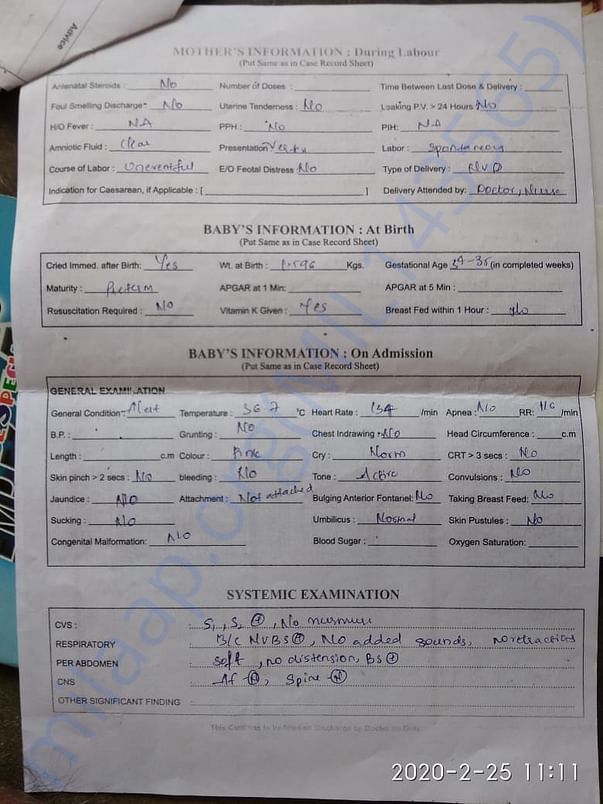 Advice
MOTHER'S INFORMATION : During Labour
(Put Same as in Case Record Sheet)
Antenatal Steroids : No Number of Doses : Time Between Last Dose & Delivery :
Foul Smelling Discharge- No Uterine Tenderness : No Leaking P.V. > 24 Hours No
H/O Fever : NA PPH : No PIH: NA
Amniotic Fluid : Clear Presentation Vertex Labor : Spontaneous
Course of Labor : Uneventful E/O Feotal Distress : No Type of Delivery : NVD
Indication for Caesarean, if Applicable : [ ] Delivery Attended by: Doctor, Nurse
BABY'S INFORMATION : At Birth
(Put Same as in Case Record Sheet)
Cried Immed. after Birth: Yes Wt. at Birth : 1.596 Kgs. Gestational Age 34-35 (in completed weeks)
Maturity : Preterm APGAR at 1 Min: APGAR at 5 Min :
Resuscitation Required : No Vitamin K Given : Yes Breast Fed within 1 Hour : No
BABY'S INFORMATION : On Admission
(Put Same as in Case Record Sheet)
GENERAL EXAMINATION
General Condition- Alert Temperature : 36.7 °C Heart Rate : 134 /min Apnea : No RR: /min
B.P. : Grunting : No Chest Indrawing : No Head Circumference : c.m
Length : c.m Colour : Pink Cry : Norm CRT > 3 secs : No
Skin pinch > 2 secs : No bleeding : No Tone : Active Convulsions : No
Jaundice : No Attachment : Not attached Bulging Anterior Fontanel: No Taking Breast Feed: No
Sucking : No Umbilicus : Normal Skin Pustules : No
Congenital Malformation: No Blood Sugar : Oxygen Saturation:
SYSTEMIC EXAMINATION
CVS : S1, S2 ⊕, No murmur
RESPIRATORY : B/L NVBS ⊕, No added sounds, no retractions
PER ABDOMEN : Soft, no distension, BS ⊕
CNS : Af Ⓝ, Spine Ⓝ
OTHER SIGNIFICANT FINDING :
milaap.org(MIL145565)
2020-2-25 11:11